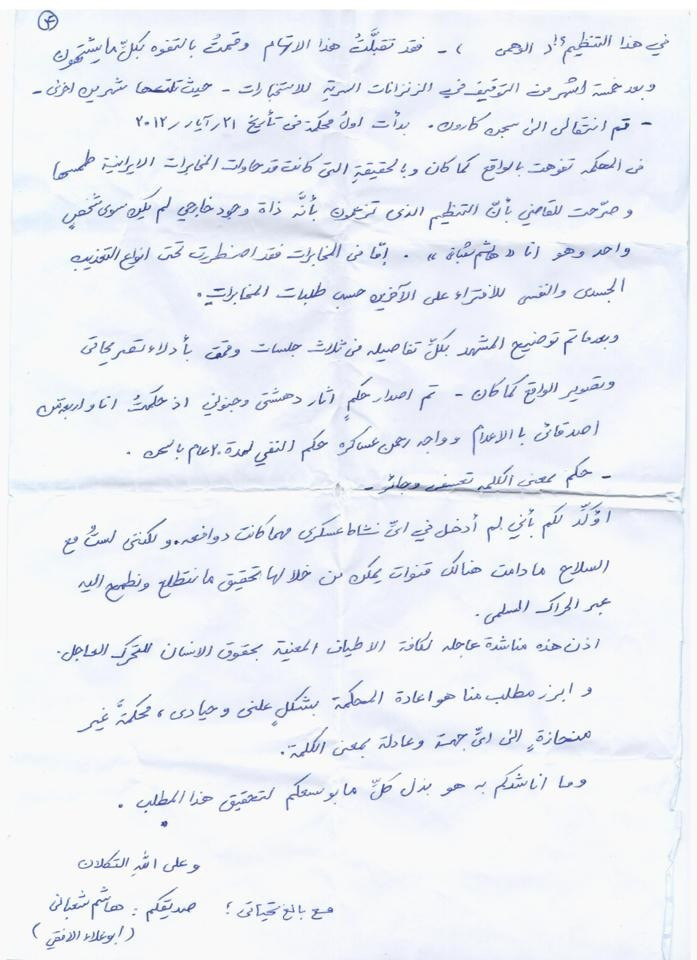 ٤
في هذا التنظيم (الوهمی)، - فقد تقبّلتُ هذا الاتهام وقمتُ بالتفوه بكلّ ما يشتهون
وبعد خمسة اشهر من التوقيف في الزنزانات السرية للاستخبارات - حيث تلتها شهرين اخرى -
- تم انتقالی الى سجن كارون. بدأت اول محكمة فی تأريخ ٢١/آيار/٢٠١٢
فی المحكمه تفوهت بالواقع كما كان وبالحقيقةِ التی كانت قد حاولت المخابرات الايرانية طمسها
و صرّحت للقاضي بأن التنظيم الذی تزعمون بأنَّه ذاة وجود خارجي لم يكن سوى شخصٍ
واحد وهو انا «هاشم شعبانی». إمّا فی المخابرات فقد اضطررت تحت انواع التعذيب
الجسدی والنفسی للأفتراء على الآخرين حسب طلبات المخابرات.
وبعدما تم توضيح المشهد بكلّ تفاصيله فی ثلاث جلسات وقمت بأدلاء تصريحاتی
وتصوير الواقع كما كان - تم اصدار حكمٍ اثار دهشتی وجنونی اذ حكمتُ انا واربعة من
اصدقائی بالاعدام وواجه رحمن عساكره حكم النفي لمدة ٢٠ عام بالسجن.
- حكم بمعنى الكلمه تعسفی وجائر -
اؤكِّد لكم بأنني لم أدخل في ایِّ نشاط عسكری مهما كانت دوافعه. ولكننی لستُ مع
السلاح مادامت هنالك قنوات يمكن من خلالها تحقيق ما نتطلع ونطمح اليه
عبر الحراك السلمی.
اذن هذه مناشدة عاجله لكافة الاطياف المعنية بحقوق الانسان للتحرك العاجل.
و ابرز مطلب منا هو اعادة المحكمة بشكلٍ علنی وحيادی، محكمةً غير
منحازةٍ الى ایِّ جهة وعادلة بمعنى الكلمة.
وما اناشدكم به هو بذل كلِّ ما بوسعكم لتحقيق هذا المطلب.
وعلى اللهِ التكلان
مع بالغ تحياتی؛ صديقكم: هاشم شعبانی
(ابوعلاء الافقي)